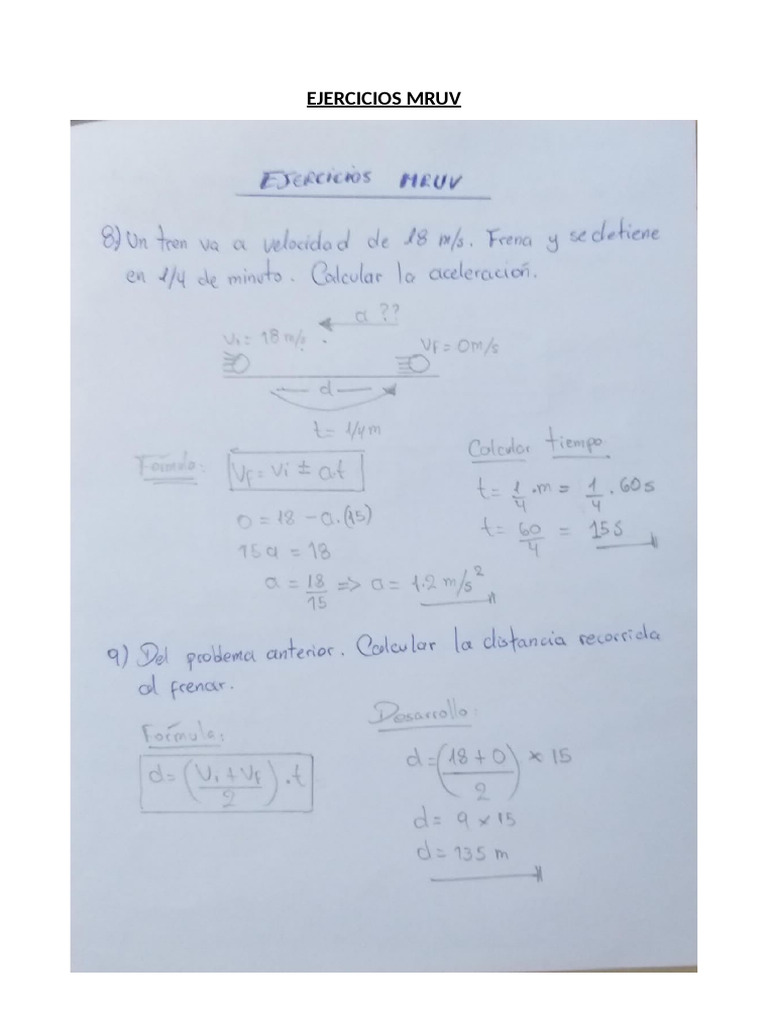 EJERCICIOS MRUV
EJERCICIOS MRUV
8) Un tren va a velocidad de 18 m/s. Frena y se detiene
en 1/4 de minuto. Calcular la aceleración.
a ??
Vi = 18 m/s
Vf = 0 m/s
d
t = 1/4 m
Fórmula:
Vf = Vi ± a.t
0 = 18 - a.(15)
15a = 18
a = 18/15 => a = 1.2 m/s²
Calcular tiempo
t = 1/4 . m = 1/4 . 60s
t = 60/4 = 15s
9) Del problema anterior. Calcular la distancia recorrida
al frenar.
Fórmula:
d = (Vi + Vf / 2) . t
Desarrollo:
d = (18 + 0 / 2) × 15
d = 9 × 15
d = 135 m